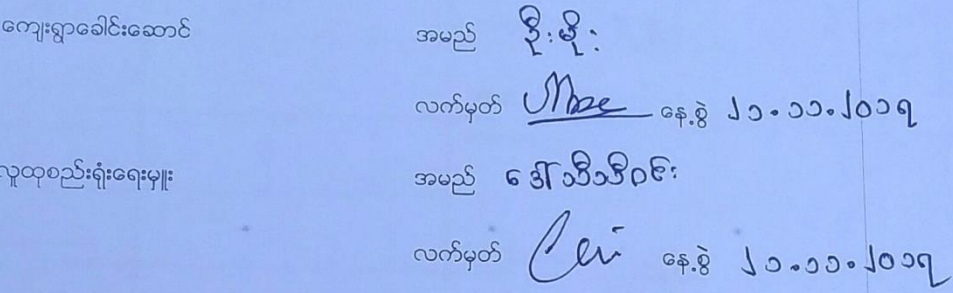 ကျေးရွာခေါင်းဆောင် အမည် ဦးမိုး
လက်မှတ် UMoe နေ့စွဲ ၂၁.၁၁.၂၀၁၇
လူထုစည်းရုံးရေးမှူး အမည် ဒေါ်သီသီဝင်း
လက်မှတ် နေ့စွဲ ၂၁.၁၁.၂၀၁၇